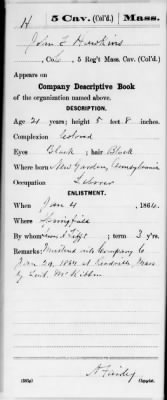 H 5 Cav. (Col'd.) Mass.
John L Hawkins
, Co. , 5 Reg't Mass. Cav. (Col'd.)
Appears on
Company Descriptive Book
of the organization named above.
DESCRIPTION.
Age 21 years; height 5 feet 8 inches.
Complexion Colored
Eyes Black ; hair Black
Where born New Garden, Pennsylvania
Occupation Laborer
ENLISTMENT.
When Jan 4 , 1864.
Where Springfield
By whom ; term 3 y'rs.
Remarks: Mustered into Company
Jan 29, 1864 at Readville, Mass
by Lieut. McKibbin
Copyist.